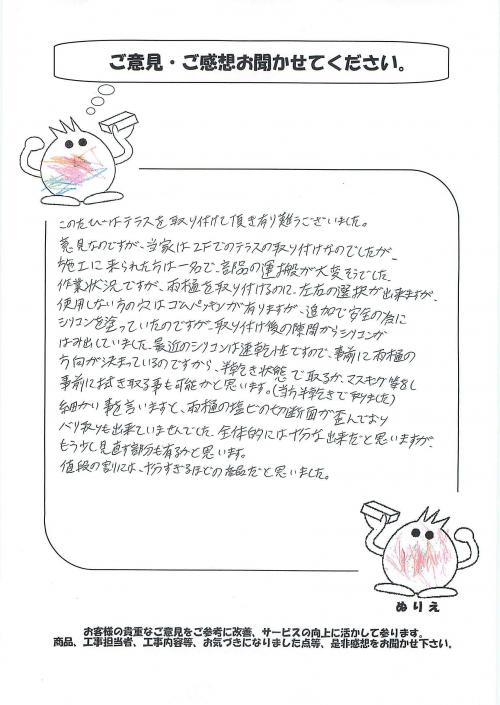 ご意見・ご感想お聞かせてください。
このたびはテラスを取り付けて頂き有り難うございました。
意見なのですが、当家は2Fでのテラスの取り付けなのでしたが、
施工に来られた方は一名で、部品の運搬が大変そうでした。
作業状況ですが、雨樋を取り付けるのに、左右の選択が出来ますが、
使用しない方の穴はゴムパッキンが有りますが、追加で安全の為に
シリコンを塗っていたのですが、取り付け後の隙間からシリコンが
はみ出していました。最近のシリコンは速乾性ですので、事前に雨樋の
方向が決まっているのですから、半乾き状態で取るか、マスキング等し
事前に拭き取る事も可能かと思います。(当方半乾きで取りました)
細かい事を言いますと、雨樋の塩ビの切断面が歪んでおり
バリ取りも出来ていませんでした。全体的には十分な出来だと思いますが、
もう少し見直す部分も有るかと思います。
値段の割には、十分すぎるほどの商品だと思いました。
ぬりえ
お客様の貴重なご意見をご参考に改善、サービスの向上に活かして参ります。
商品、工事担当者、工事内容等、お気づきになりました点等、是非感想をお聞かせ下さい。